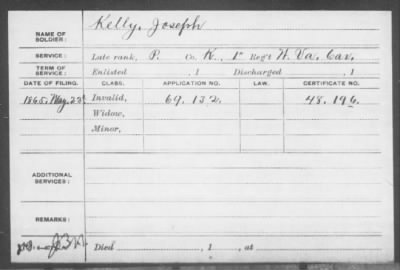 NAME OF SOLDIER: Kelly, Joseph
SERVICE: Late rank, P. Co. K, 1st Reg't W. Va. Cav.
TERM OF SERVICE: Enlisted , 1 Discharged , 1
DATE OF FILING. CLASS. APPLICATION NO. LAW. CERTIFICATE NO.
1865, May 22 Invalid, 69.132 48.196
Widow,
Minor,
ADDITIONAL SERVICES:
REMARKS:
Died , 1 , at